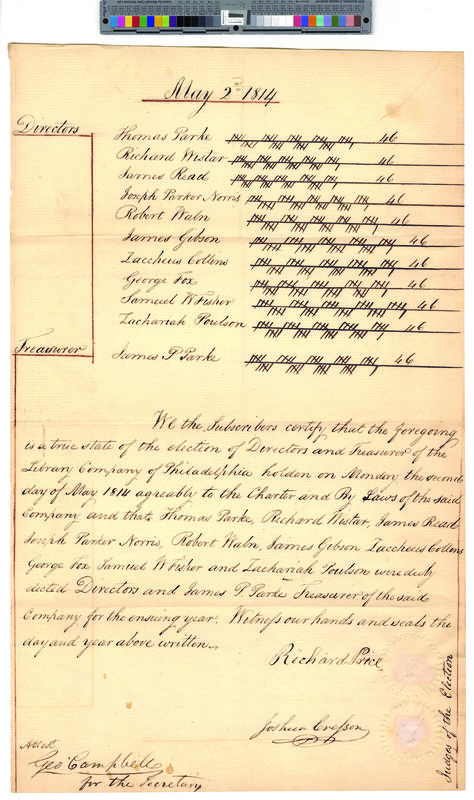 May 2ᵈ 1814
Directors
Thomas Parke 46
Richard Wistar 46
James Read 46
Joseph Parker Norris 46
Robert Waln 46
James Gibson 46
Zaccheus Collins 46
George Fox 46
Samuel W Fisher 46
Zachariah Poulson 46
Treasurer
James P Parke 46
We the Subscribers certify that the foregoing
is a true state of the election of Directors and Treasurer of the
Library Company of Philadelphia holden on Monday the second
day of May 1814 agreably to the Charter and By Laws of the said
Company and that Thomas Parke, Richard Wistar, James Read
Joseph Parker Norris, Robert Waln, James Gibson Zaccheus Collins
George Fox Samuel W Fisher and Zachariah Poulson were duly
elected Directors and James P Parke Treasurer of the said
Company for the ensuing year. Witness our hands and seals the
day and year above written.
Richard Price
Joshua Cresson
Judges of the Election
Attest
Geo Campbell
for the Secretary